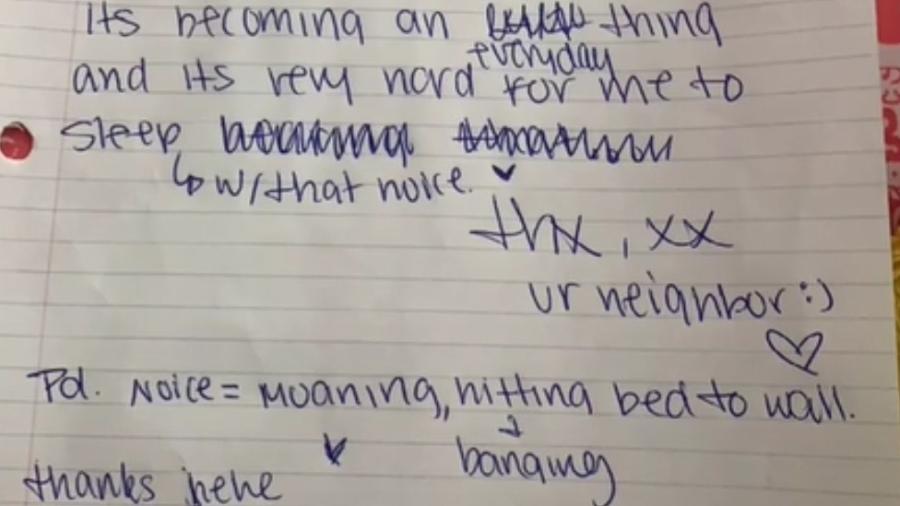 Its becoming an everyday thing
and its very hard for me to
sleep
↳ w/that noice.
thx, xx
ur neighbor :)
Pd. Noice = Moaning, hitting bed to wall.
banging
thanks hehe